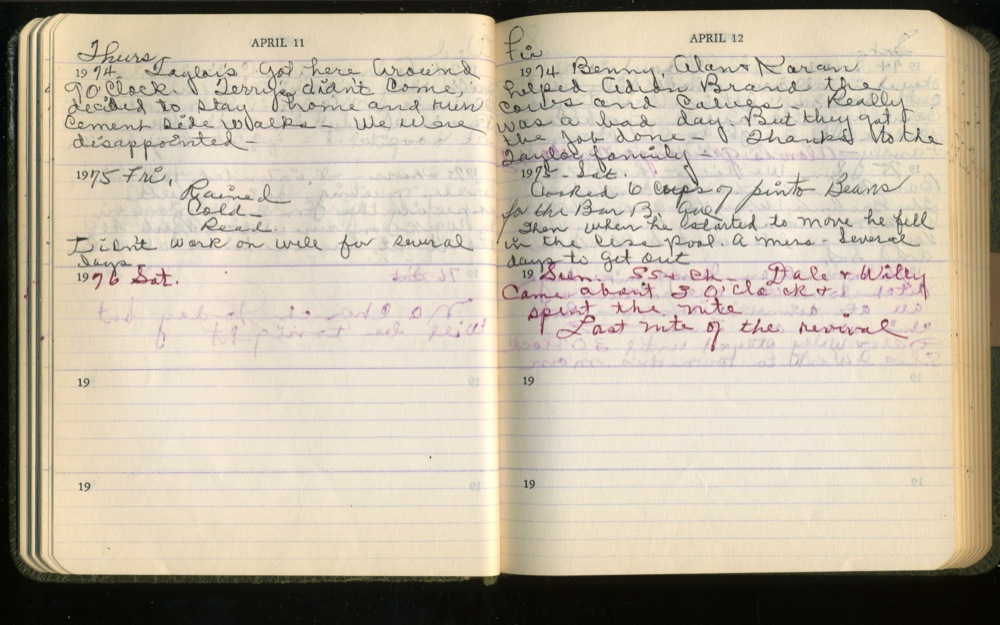 APRIL 11
Thurs
1974. Taylor's got here around
9 O'Clock. Terry didn't come,
decided to stay home and run
cement side walks - We were
disappointed -
1975 Fri.
Rained
Cold -
Real
Didn't work on well for several
days
1976 Sat.
19
19
APRIL 12
Fri
1974 Benny, Alan & Karan
helped Brand the
cows and calves - Really
was a bad day But they got
the job done - Thanks to the
Taylor family -
1975 - Sat.
Cooked 6 cups of pinto Beans
for the Bar B. Que
Then when he started to move he fell
in the Pool. A mess - Several
days to get out
19 Sun. SS & Ch - Dale & Willy
Came about 3 O'clock &
spent the nite
Last nite of the revival
19
19